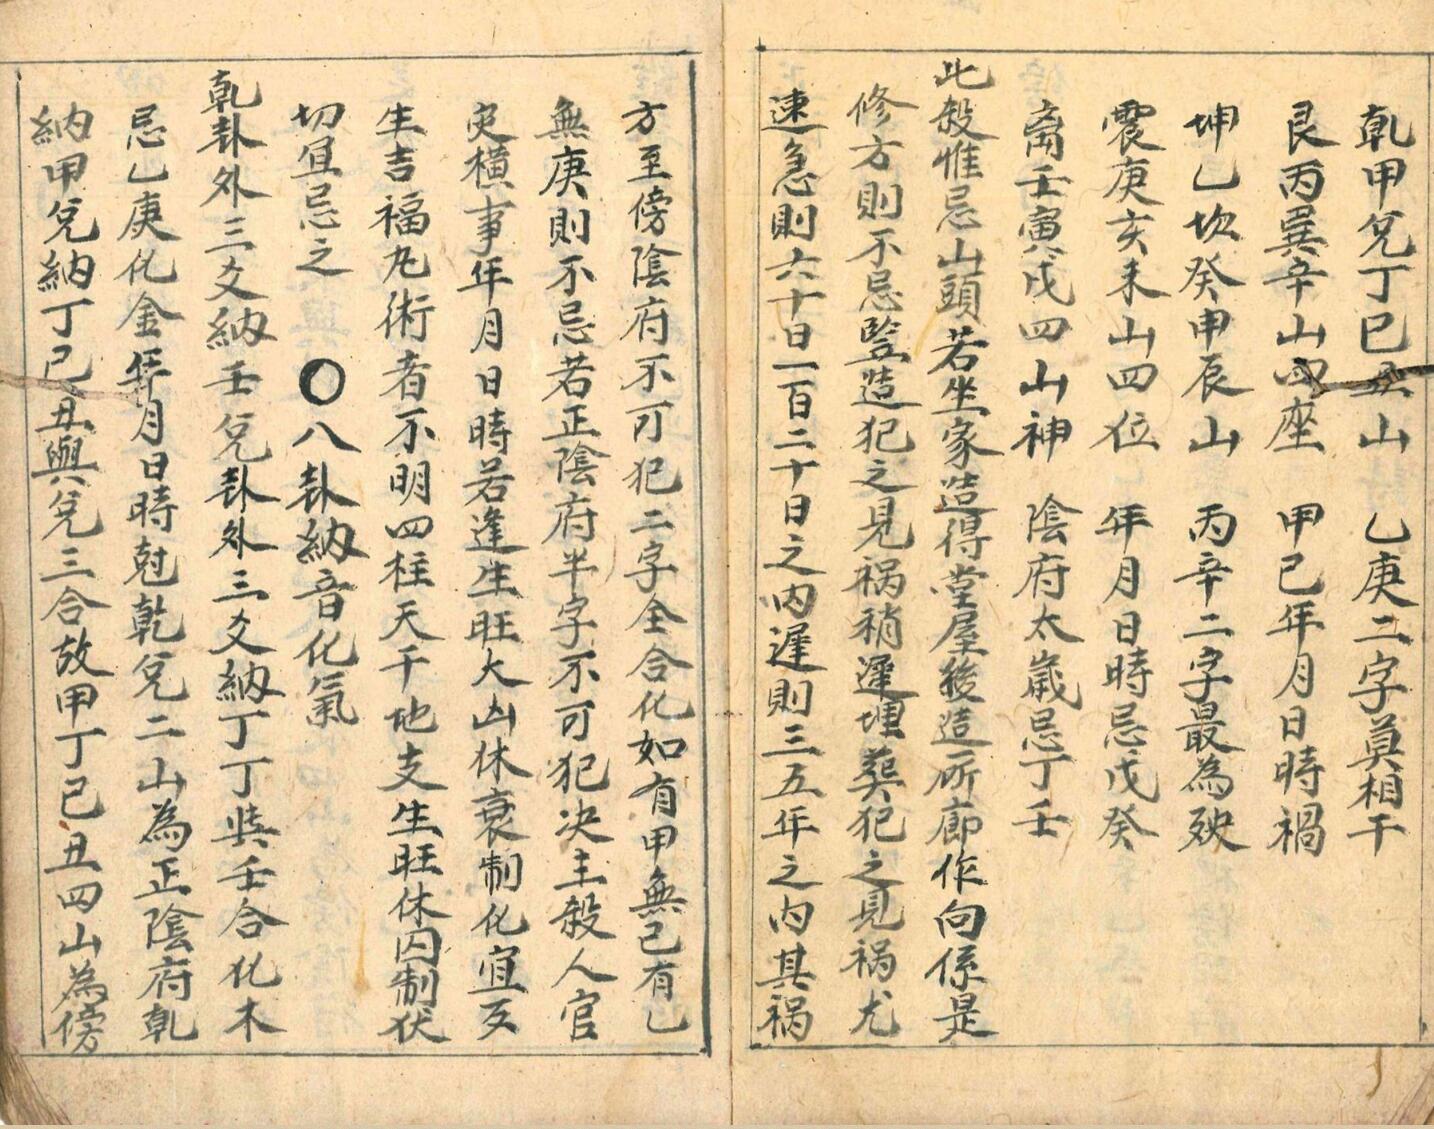 乹甲兌丁巳丑山　乙庚二字莫相干
艮丙巽辛山四座　甲己年月日時禍
坤乙坎癸申辰山　丙辛二字最為殃
震庚亥未山四位　年月日時忌戊癸
离壬寅戌四山神　陰府太歲忌丁壬
此殺惟忌山頭若坐家造得堂屋後造所廊作向係是
修方則不忌竪造犯之見禍稍遲埋葬犯之見禍尤
速急則六十日一百二十日之內遲則三五年之內其禍
方至傍陰府不可犯二字全合化如有甲無己有乙
無庚則不忌若正陰府半字不可犯决主殺人官
灾橫事年月日時若逢生旺大凶休衰制化宜
生吉福九術者不明四柱天干地支生旺休囚制伏
切宜忌之　〇八卦納音化氣
乹卦外三爻納壬兌卦外三爻納丁丁與壬合化木
忌乙庚化金年月日時尅乾兌二山為正陰府乹
納甲兌納丁巳丑與兌三合故甲丁巳丑四山為傍